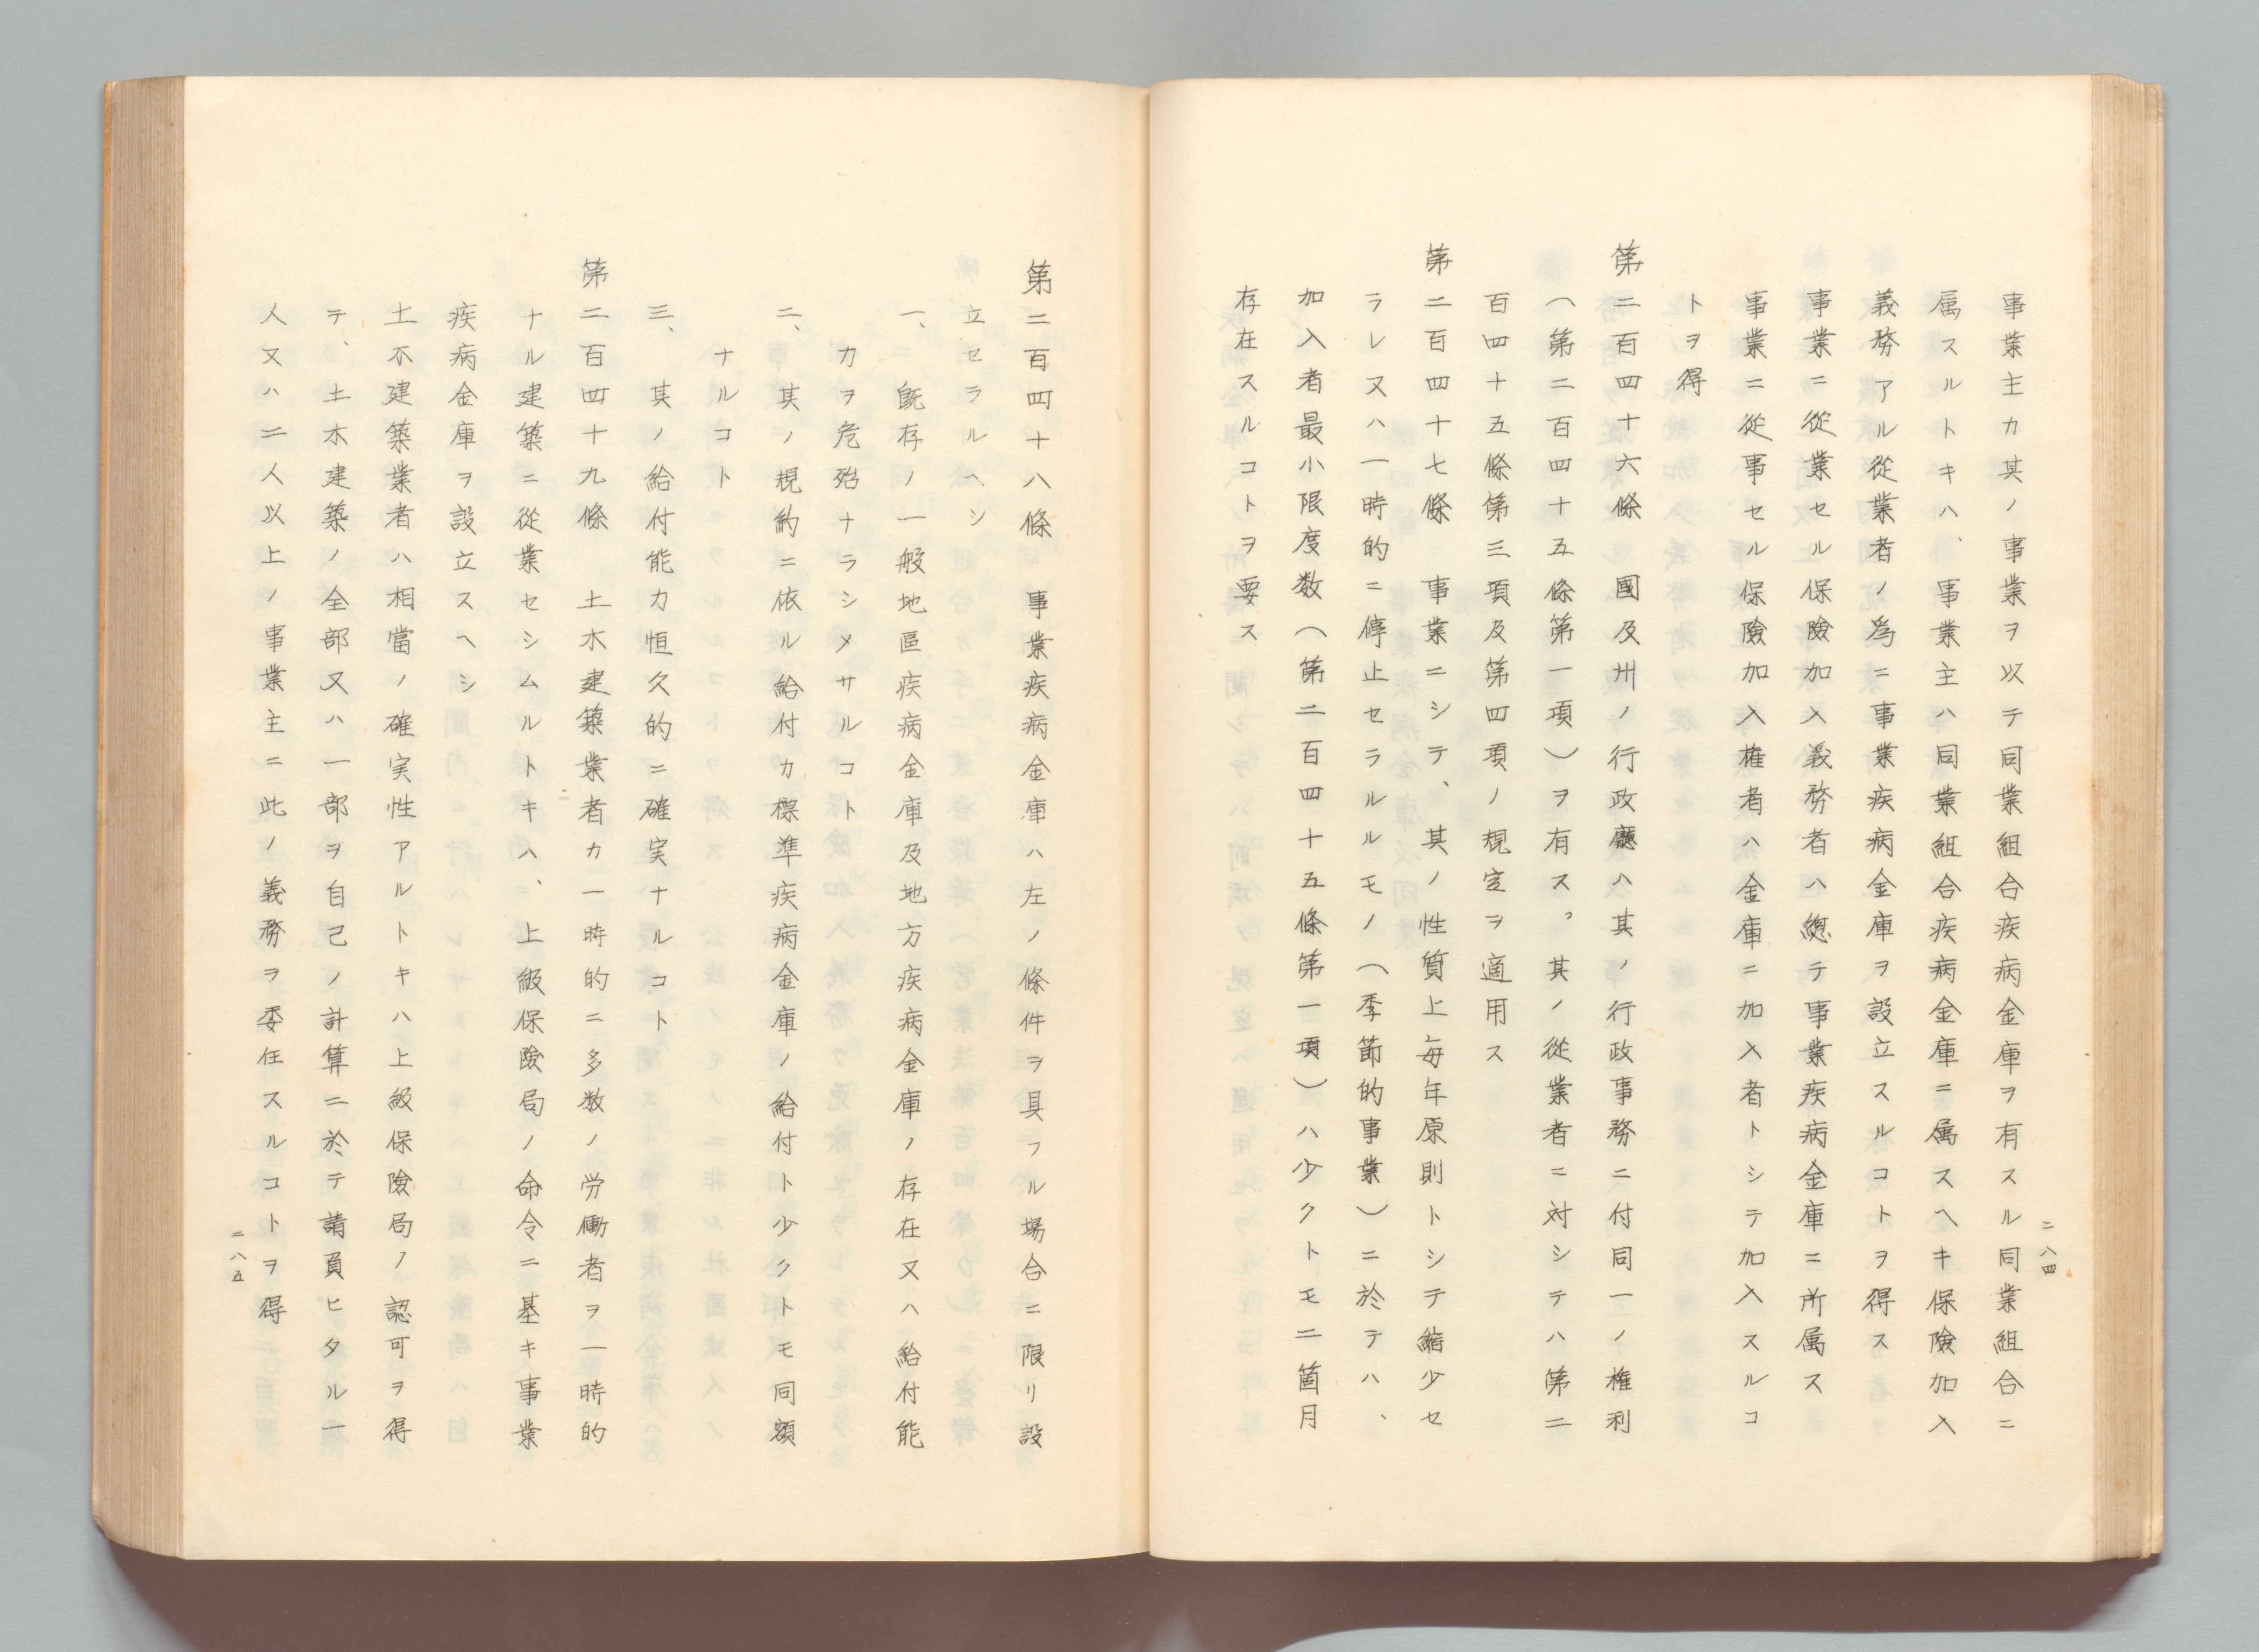 事業主カ其ノ事業ヲ以テ同業組合疾病金庫ヲ有スル同業組合ニ
属スルトキハ、事業主ハ同業組合疾病金庫ニ属スヘキ保險加入
義務アル從業者ノ爲ニ事業疾病金庫ヲ設立スルコトヲ得ス
事業ニ從業セル保險加入義務者ハ總テ事業疾病金庫ニ所属ス
事業ニ從事セル保險加入権者ハ金庫ニ加入者トシテ加入スルコ
トヲ得
第二百四十六條　國及州ノ行政廳ハ其ノ行政事務ニ付同一ノ権利
（第二百四十五條第一項）ヲ有ス。其ノ從業者ニ対シテハ第二
百四十五條第三項及第四項ノ規定ヲ適用ス
第二百四十七條　事業ニシテ、其ノ性質上毎年原則トシテ縮少セ
ラレ又ハ一時的ニ停止セラルルモノ（季節的事業）ニ於テハ、
加入者最小限度数（第二百四十五條第一項）ハ少クトモ二箇月
存在スルコトヲ要ス
二八四
第二百四十八條　事業疾病金庫ハ左ノ條件ヲ具フル場合ニ限リ設
立セラルヘシ
一、既存ノ一般地區疾病金庫及地方疾病金庫ノ存在又ハ給付能
カヲ危殆ナラシメサルコト
二、其ノ規約ニ依ル給付カ標準疾病金庫ノ給付ト少クトモ同額
ナルコト
三、其ノ給付能カ恒久的ニ確実ナルコト
第二百四十九條　土木建築業者カ一時的ニ多数ノ労働者ヲ一時的
ナル建築ニ從業セシムルトキハ、上級保險局ノ命令ニ基キ事業
疾病金庫ヲ設立スヘシ
土木建築業者ハ相當ノ確実性アルトキハ上級保險局ノ認可ヲ得
テ、土木建築ノ全部又ハ一部ヲ自己ノ計算ニ於テ請負ヒタル一
人又ハ二人以上ノ事業主ニ此ノ義務ヲ委任スルコトヲ得
二八五